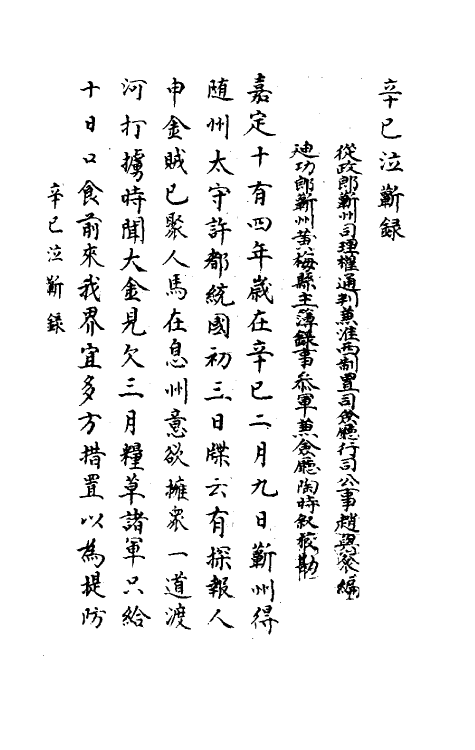 辛巳泣蘄録
從政郎蘄州司理權通判兼淮西制置司僉廳行司公事趙與𥲅編
迪功郎蘄州黄梅縣主簿録事叅軍兼僉廳陶時叙校勘
嘉定十有四年歲在辛巳二月九日蘄州得
随州太守許都統國初三日牒云有探報人
申金賊已聚人馬在息州意欲擁衆一道渡
河打擄時聞大金見欠三月糧草諸軍只給
十日口食前來我界宜多方措置以為提防
辛巳泣蘄録